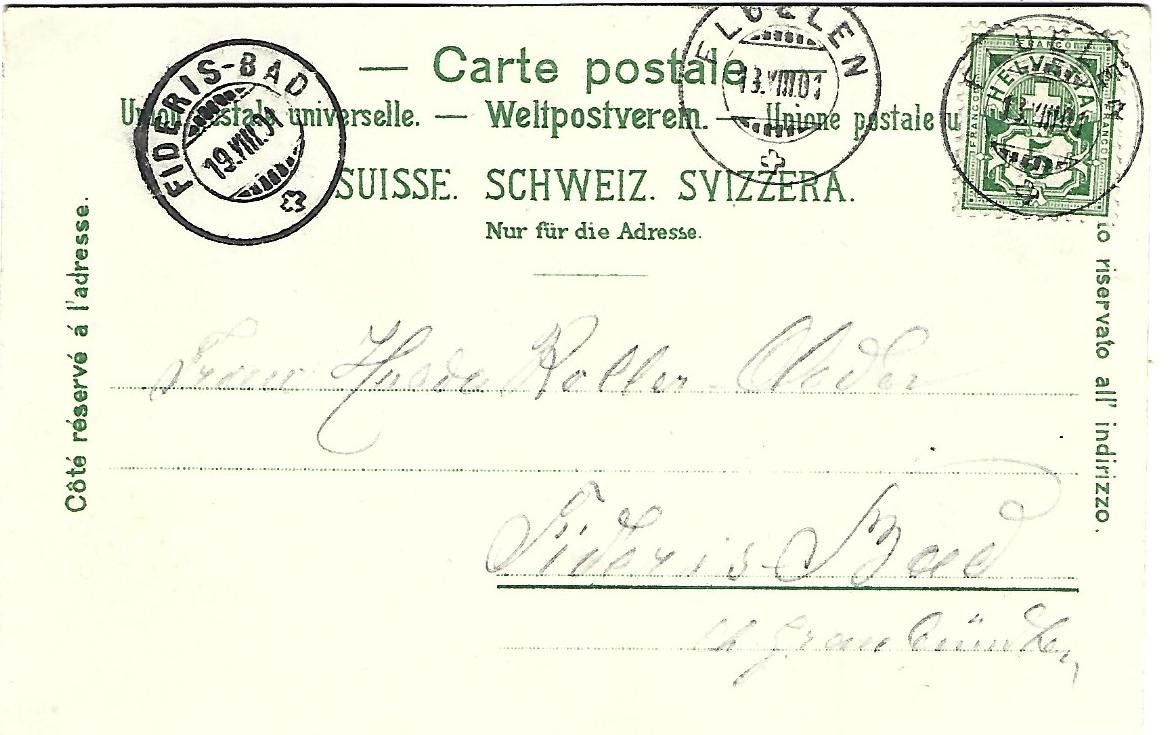 — Carte postale
Union postale universelle. — Weltpostverein. — Unione postale u
SUISSE. SCHWEIZ. SVIZZERA.
Nur für die Adresse.
Côté réservé á l'adresse.
io riservato all' indirizzo.
FIDERIS-BAD
19.VIII.01
FLÜELEN
13.VIII.01
HELVETIA
FRANCO
FRANCO
FRANCO
5
13.VIII.01
Koller
Fideris-Bad
Graubünden